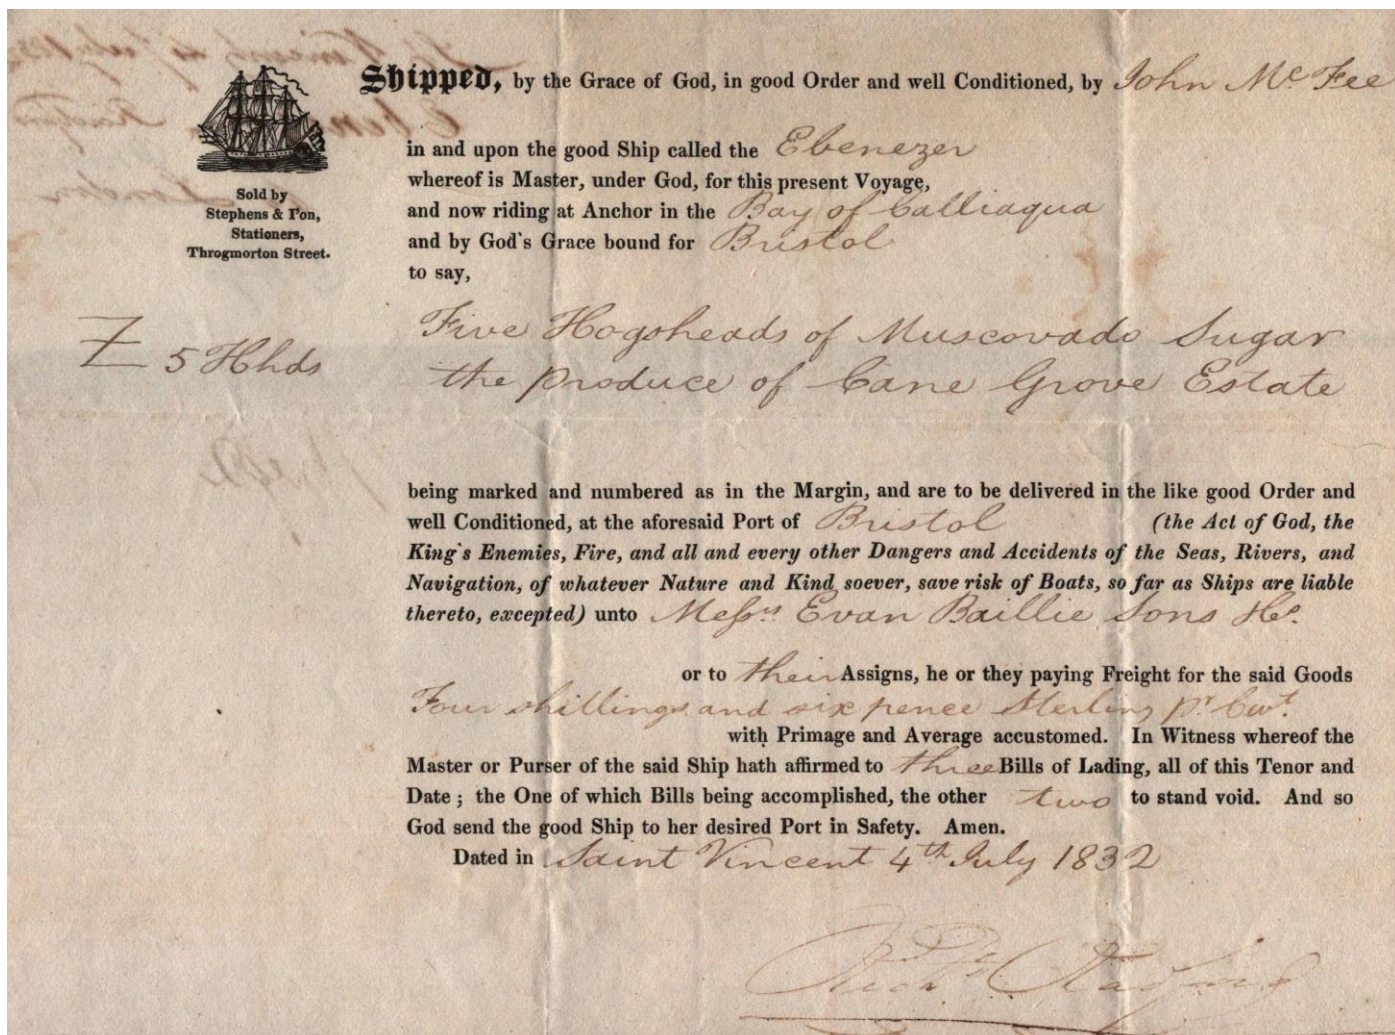 Shipped, by the Grace of God, in good Order and well Conditioned, by John Mc Fee
in and upon the good Ship called the Ebenezer
whereof is Master, under God, for this present Voyage,
and now riding at Anchor in the Bay of Calliaqua
and by God's Grace bound for Bristol
to say,
Sold by
Stephens & Son,
Stationers,
Throgmorton Street.
5 Hhds
Five Hogsheads of Muscovado Sugar
the produce of Cane Grove Estate
being marked and numbered as in the Margin, and are to be delivered in the like good Order and
well Conditioned, at the aforesaid Port of Bristol (the Act of God, the
King's Enemies, Fire, and all and every other Dangers and Accidents of the Seas, Rivers, and
Navigation, of whatever Nature and Kind soever, save risk of Boats, so far as Ships are liable
thereto, excepted) unto Messrs Evan Baillie Sons &Co.
or to their Assigns, he or they paying Freight for the said Goods
Four shillings and six pence Sterling pr Cwt.
with Primage and Average accustomed. In Witness whereof the
Master or Purser of the said Ship hath affirmed to three Bills of Lading, all of this Tenor and
Date; the One of which Bills being accomplished, the other two to stand void. And so
God send the good Ship to her desired Port in Safety. Amen.
Dated in Saint Vincent 4th July 1832